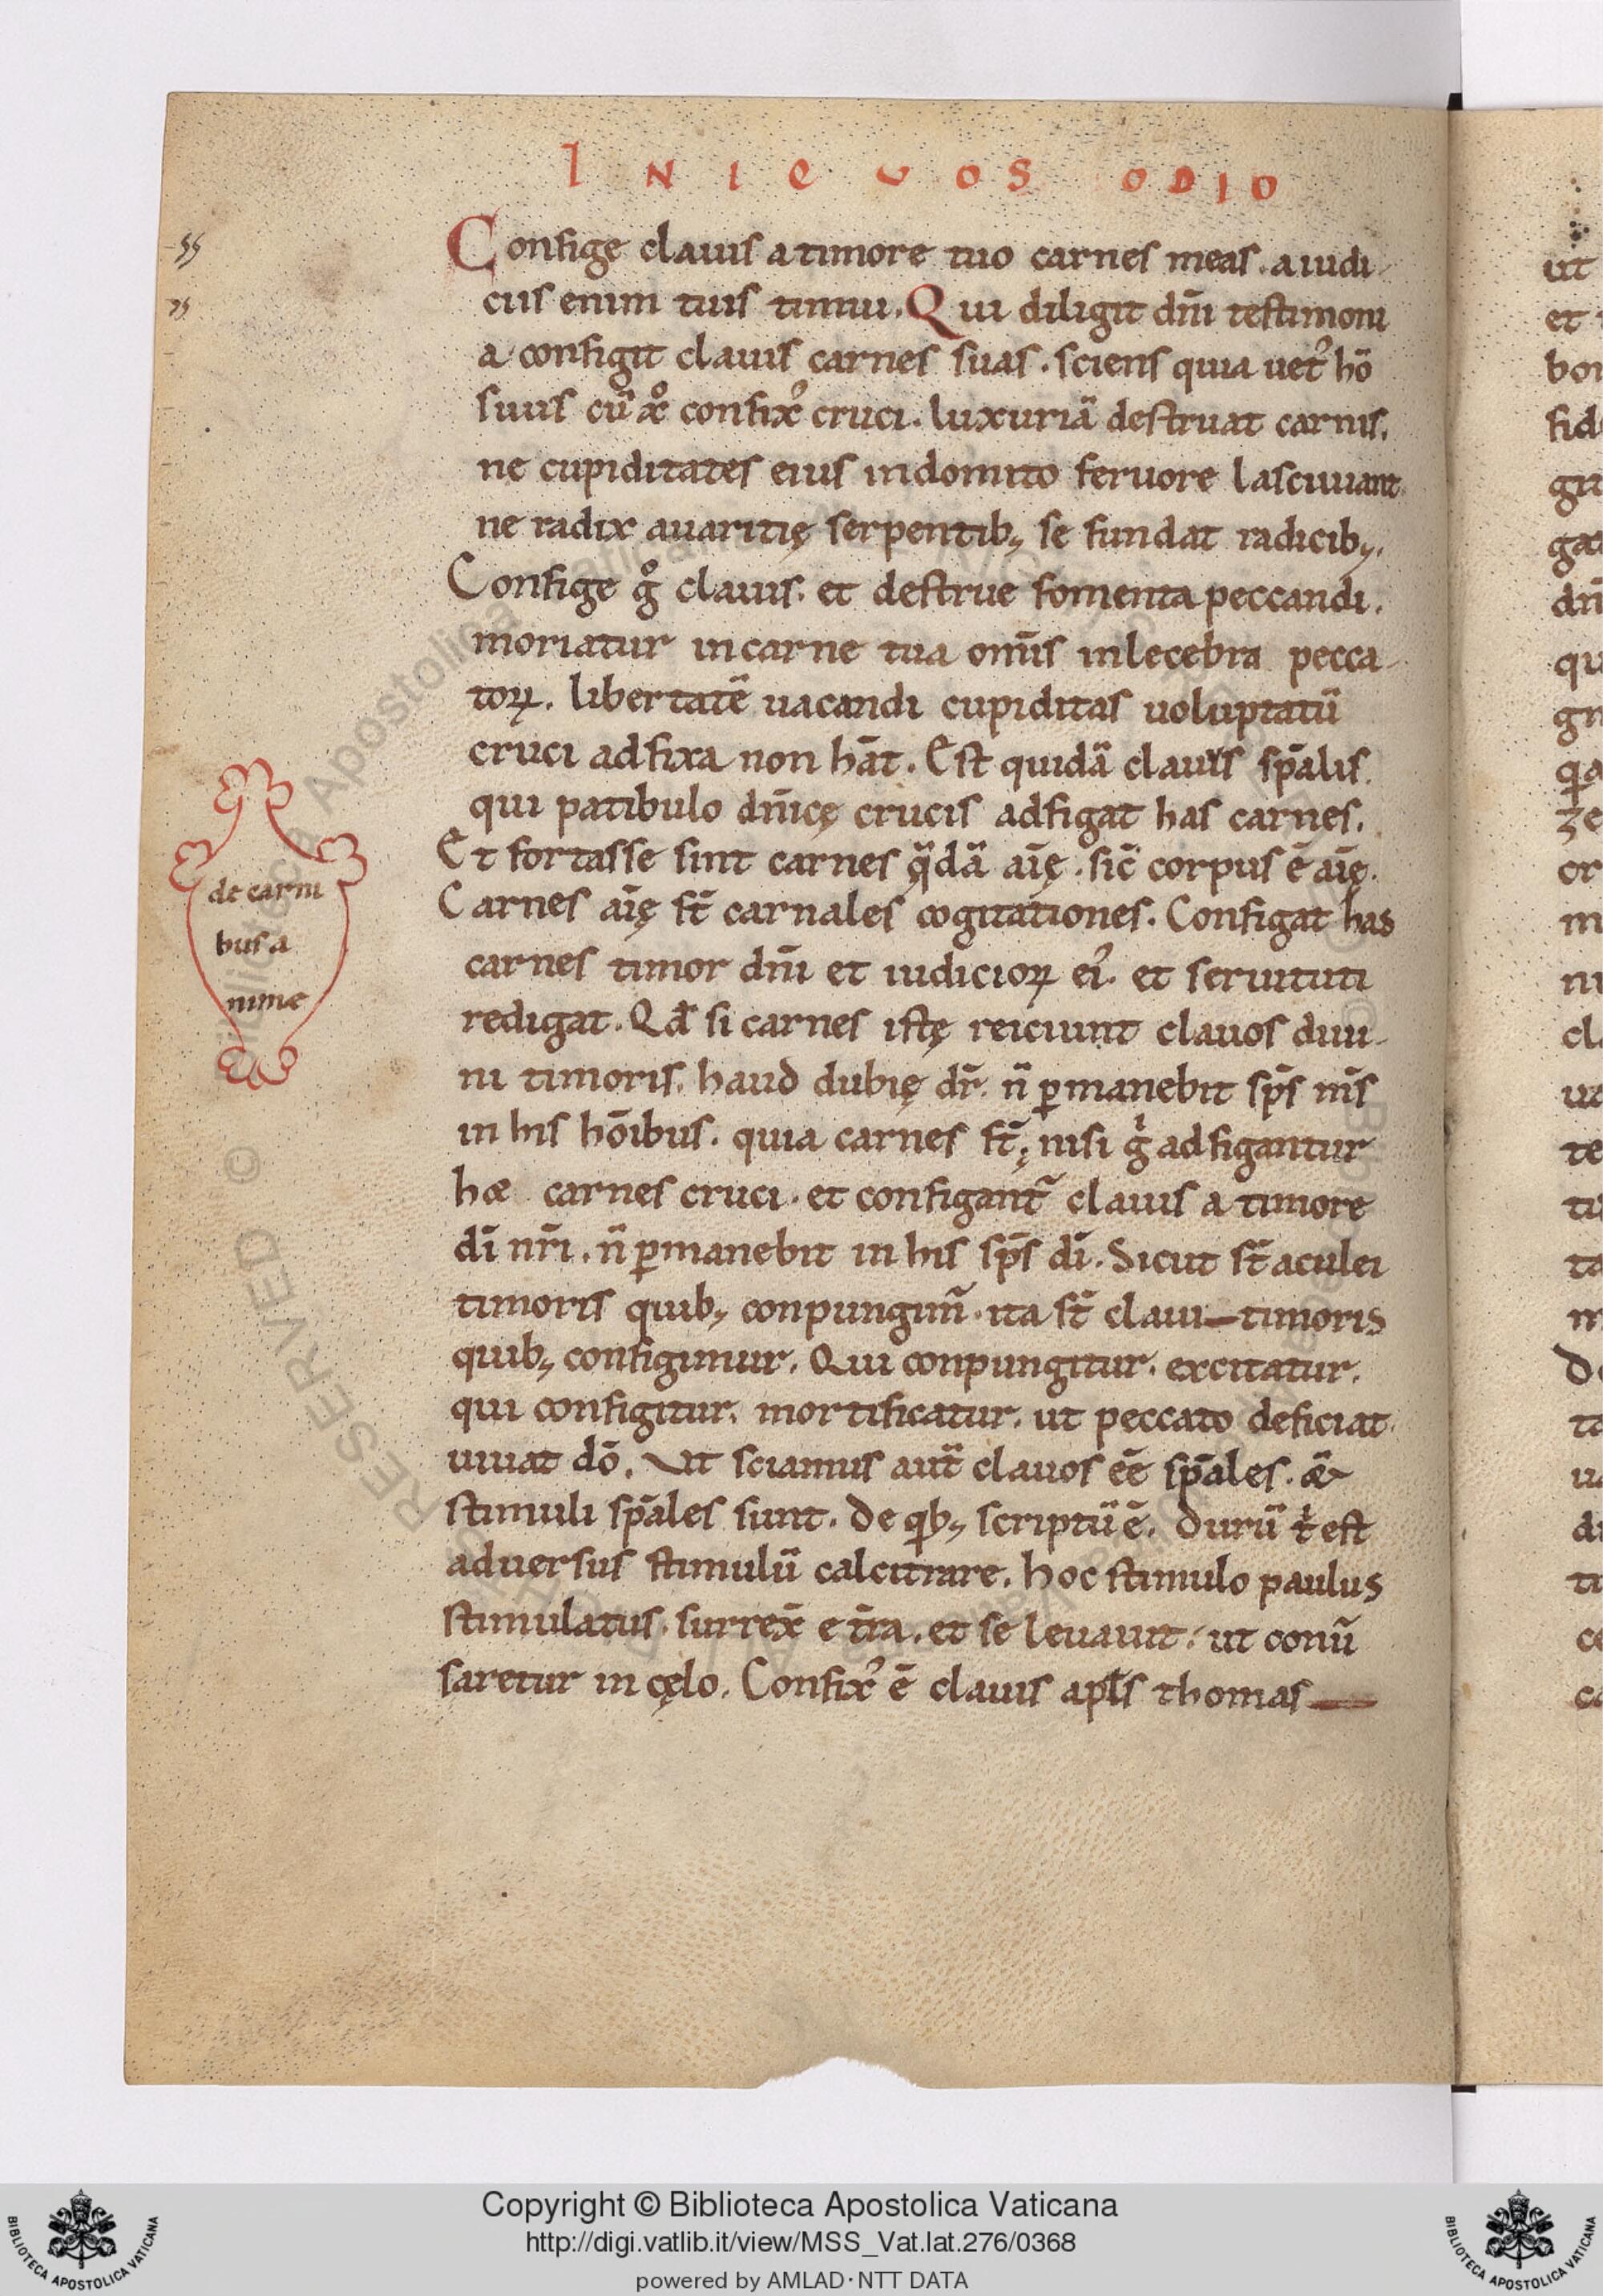 INIQUOS ODIO
Confige clauis a timore tuo carnes meas. a iudi-
ciis enim tuis timui. Qui diligit dn̄i testimoni
a configit clauis carnes suas. sciens quia uet᾽ hō
suus cū xͦ confix᾽ cruci. luxuriā destruat carnis.
ne cupiditates eius indomito feruore lasciuiant.
ne radix auaritię serpentib; se fundat radicib;.
Confige gͦ clauis. et destrue fomenta peccandi.
moriatur in carne tua om̄is inlecebra pecca-
toꝝ. libertatē uacandi cupiditas uoluptatū
cruci adfixa non hāt. Est quidā clauus sp̄alis.
qui patibulo dn̄icę crucis adfigat has carnes.
Et fortasse sint carnes q̄dā aīę. sic̄ corpus ē aīę.
Carnes aīę st̄ carnales cogitationes. Configat has
carnes timor dn̄i et iudicioꝝ ei᾽. et seruituti
redigat. Qd̄ si carnes istę reiciunt clauos diui-
ni timoris. haud dubię dr̄. n̄ ꝑmanebit sp̄s m̄s
in his hōibus. quia carnes st̄; nisi gͥ adfigantur
hæ carnes cruci. et configant᷑ clauis a timore
dī nr̄i. n̄ ꝑmanebit in his sp̄s dī. Sicut st̄ aculei
timoris quib; conpungim̄. ita st̄ claui timoris
quib; configimur. Qui conpungitur. excitatur.
qui configitur. mortificatur. ut peccato deficiat.
uiuat dō. Ut sciamus aut̄ clauos eē sp̄ales. &
stimuli sp̄ales sunt. De qb; scriptū ē. Durū tͥ est
aduersus stimulū calcitrare. hoc stimulo paulus
stimulatus. surrex̄ e t̄ra. et se leuauit. ut conū
saretur in cęlo. Confix᾽ ē clauis apl̄s thomas
de carni
bus a
nime
Copyright © Biblioteca Apostolica Vaticana
http://digi.vatlib.it/view/MSS_Vat.lat.276/0368
powered by AMLAD·NTT DATA